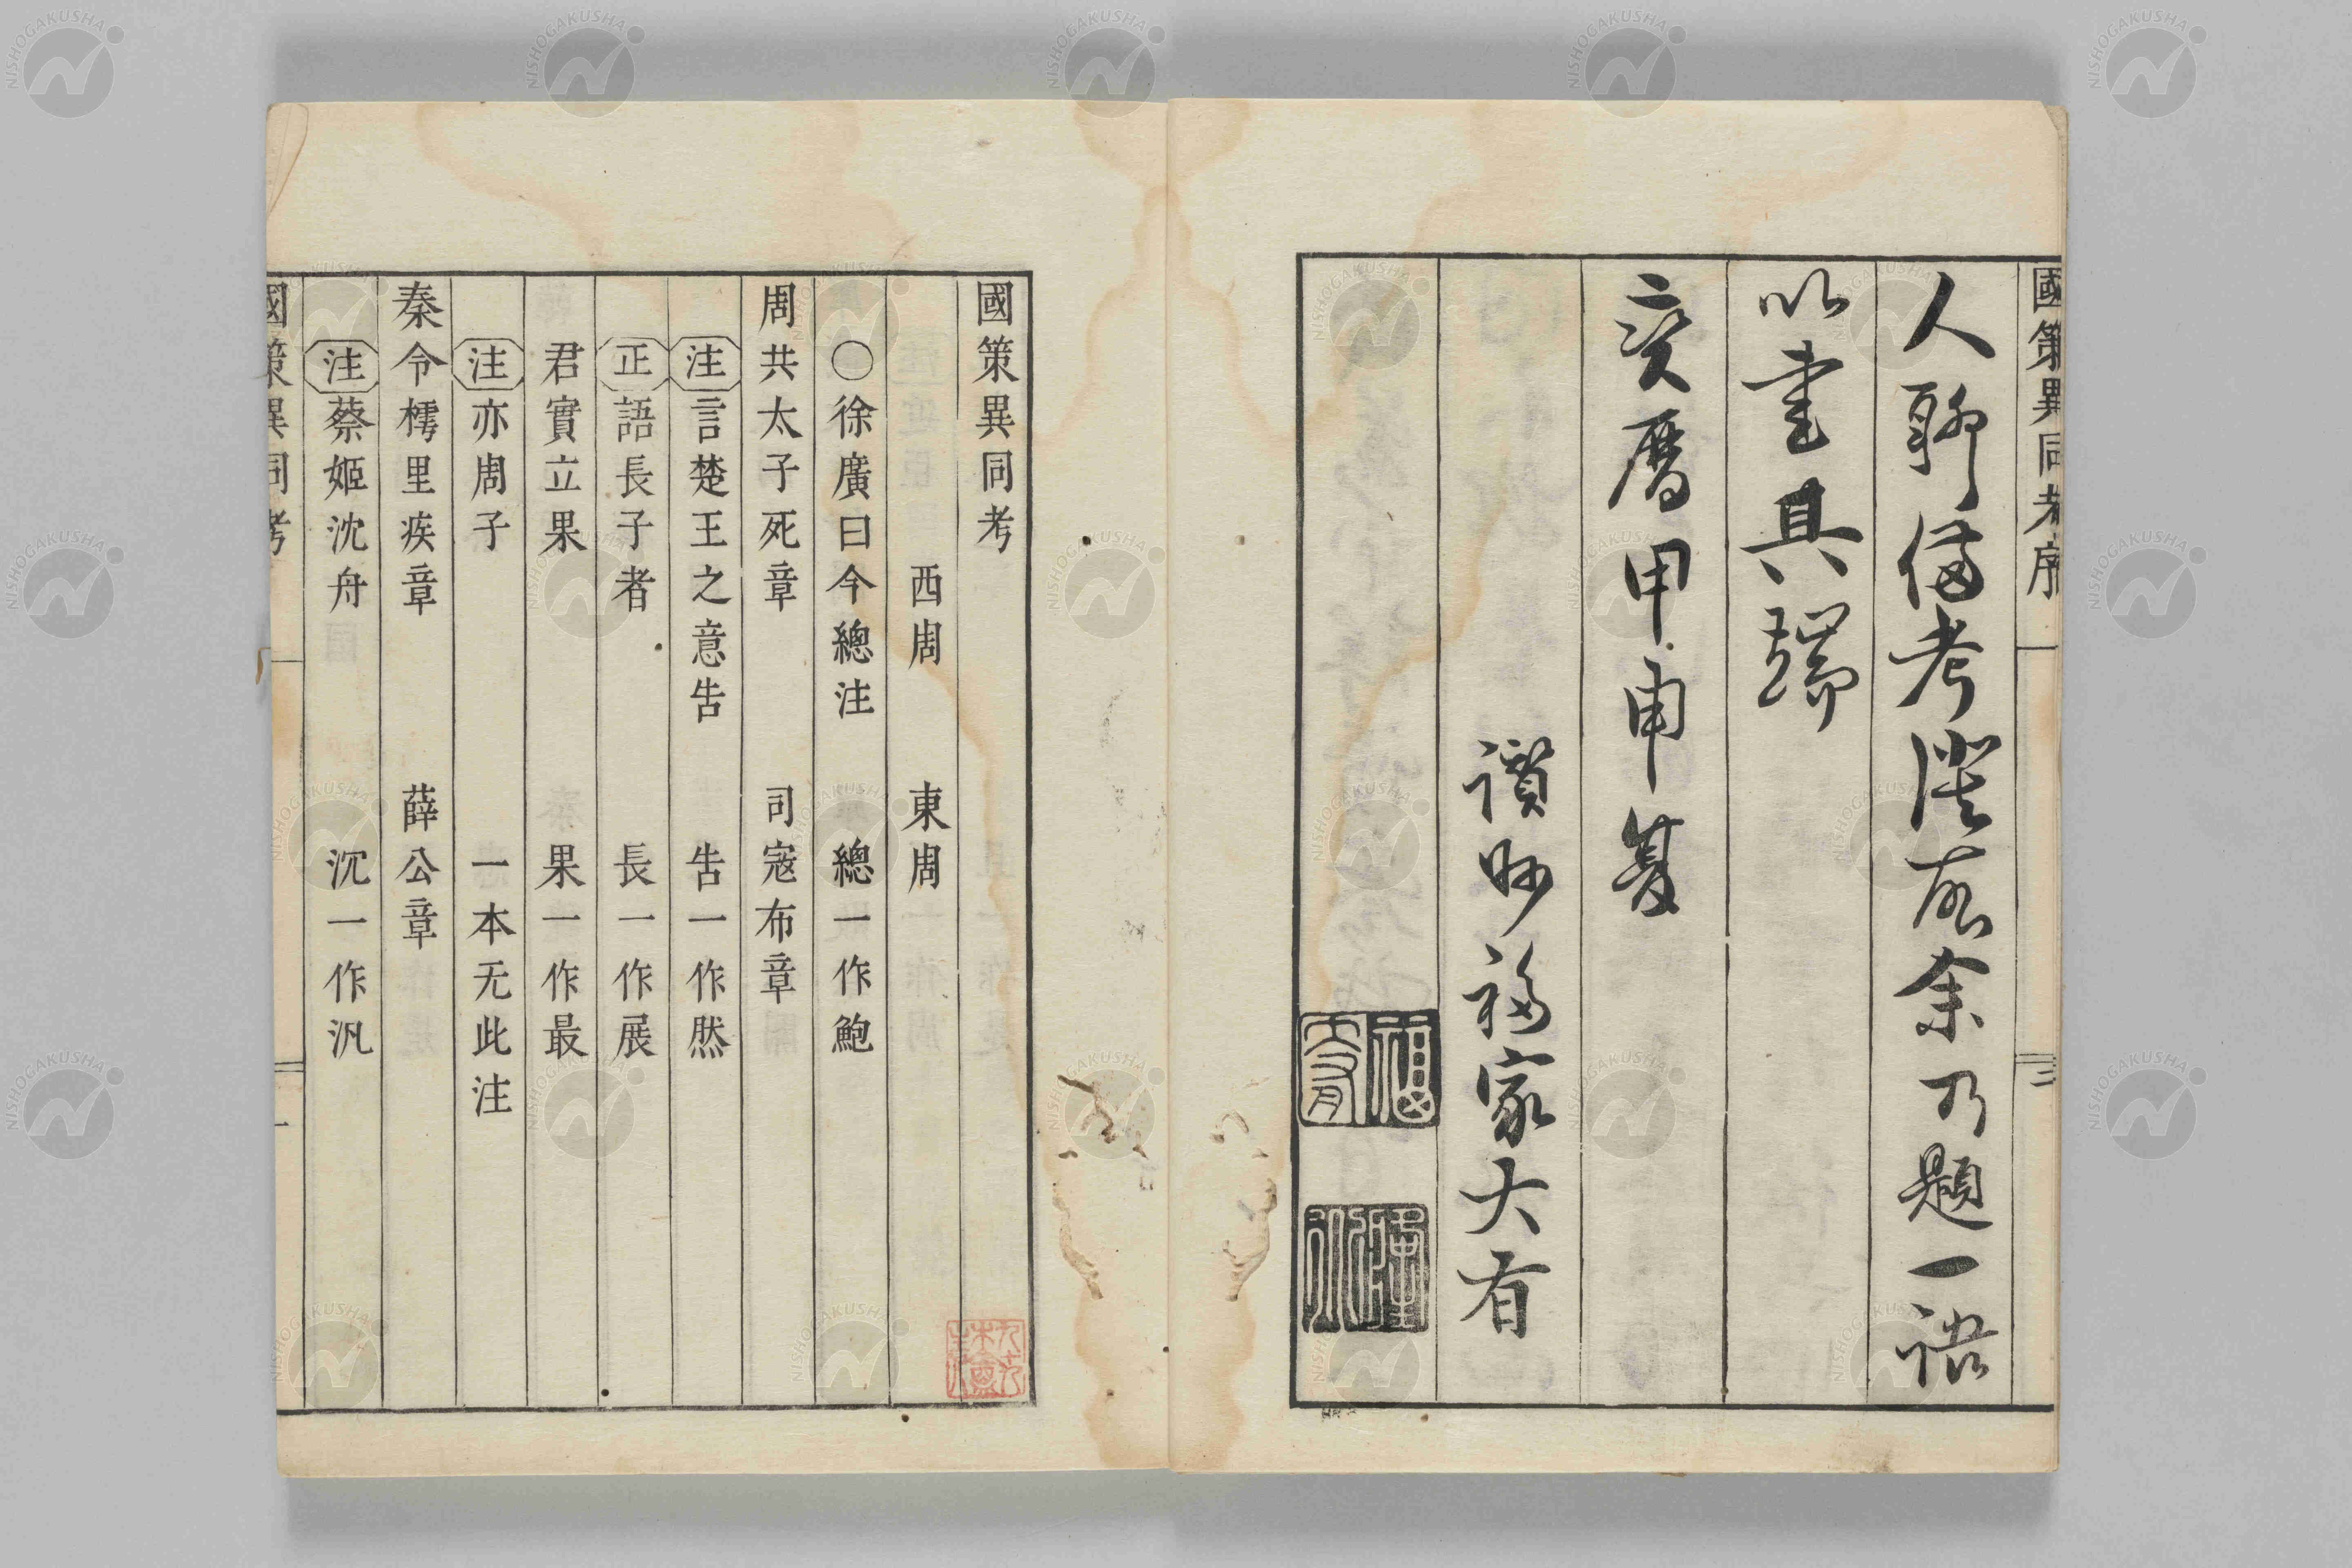 國策異同考序
人聊備考證啟余乃題一語
以書其端
寶曆甲申夏
讚州福家大有
國策異同考
西周　東周
○徐廣曰今總注　總一作鮑
周共太子死章　司寇布章
注言楚王之意告　告一作然
正語長子者　長一作展
君實立果　果一作最
注亦周子　一本无此注
秦令樗里疾章　薛公章
注蔡姬沈舟　沉一作汎
國策異同考
一
NISHOGAKUSHA